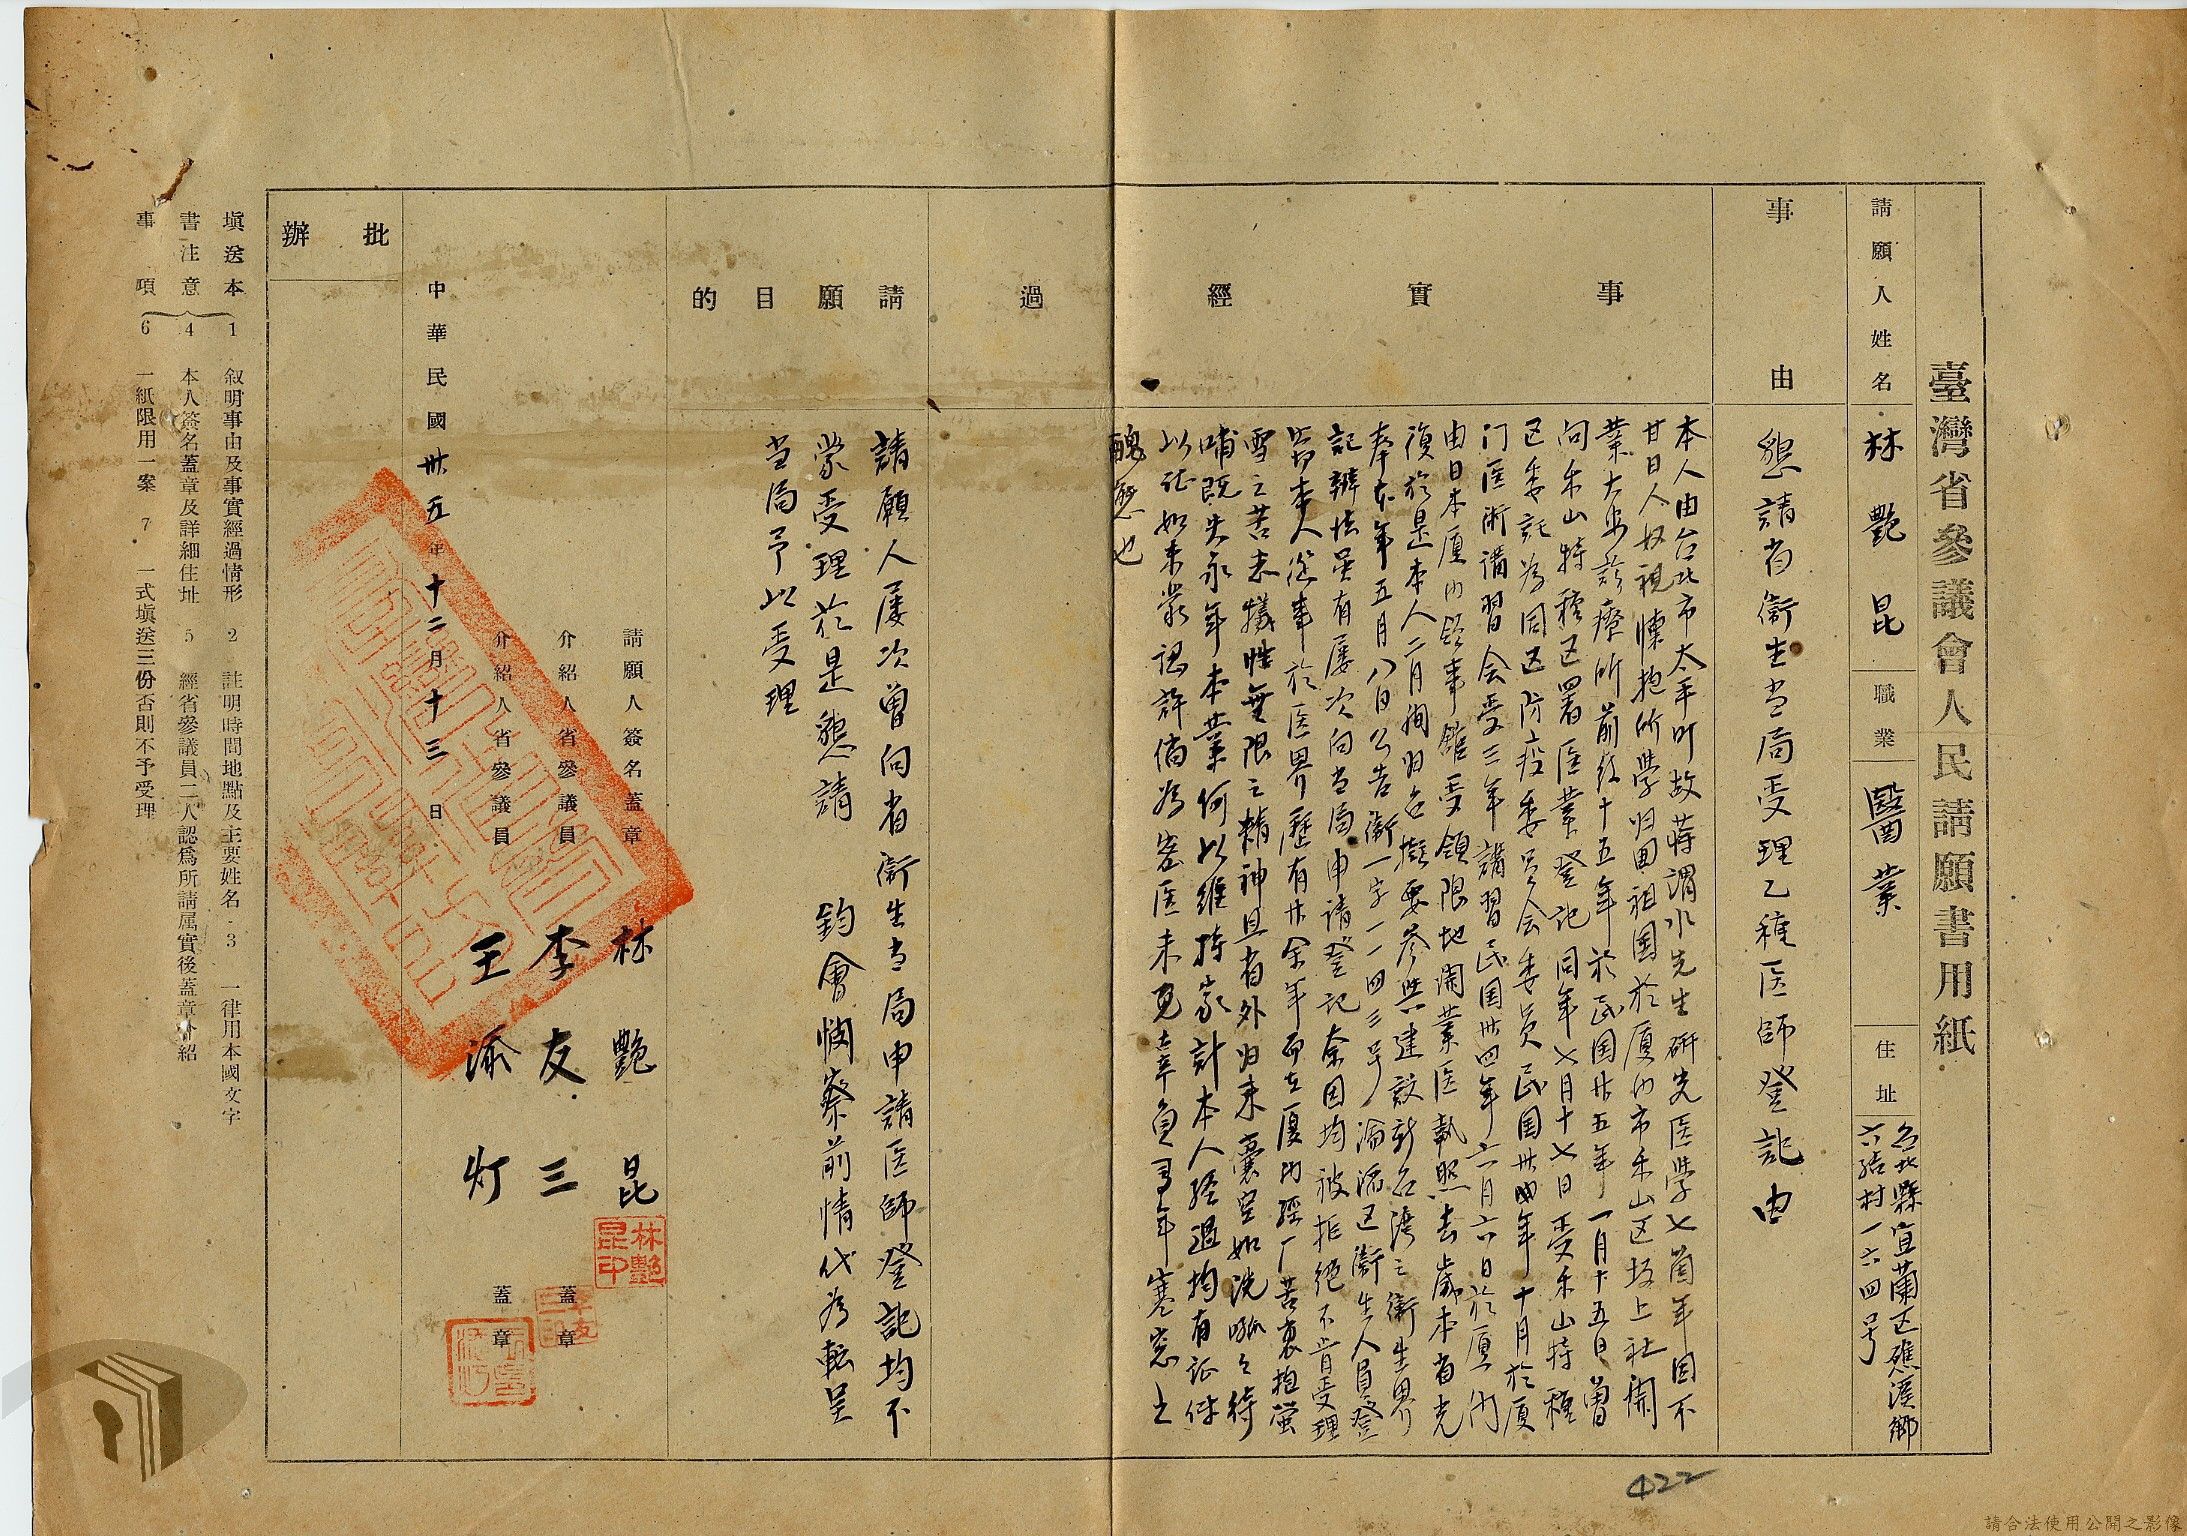 臺灣省參議會人民請願書用紙
請願人姓名 林艷昆 職業 醫業 住址 台北縣宜蘭区礁溪鄉
六結村一六四号
事由 懇請省衛生当局受理乙種医師登記由
事實經過
本人由台北市太平町故蔣渭水先生研究医学七箇年因不
甘日人奴視懷抱所学归囬祖国於厦门市禾山区坂上社開
業大安診療所前後十五年於民国廿五年一月廿五日曽
向禾山特種区署医業登記同年七月十七日受禾山特種
区委託为同区防疫委员会委员民国卅四年十月於厦
门医術講習会受三年講習民国卅四年六月六日於厦门
由日本厦门領事館受領限地開業医執照去歲本省光
復於是本人二月間归台擬要参與建設新台湾之衛生界
奉本年五月八日公告衛一字一一四三号淪陷区衛生人員登
記辦法虽有屢次向当局申請登記奈因均被拒絕不肯受理
皆本人從事於医界歷有廿余年而在厦门歷尸苦衷抱螢
雪之苦志犠牲無限之精神且省外归来囊空如洗嗷々待
哺既失永年本業何以維持家計本人经過均有证件
以证如未蒙認許倘为密医未免辜負多年寒窓之
醜態也
請願目的
請願人屡次曽向省衛生当局申請医師登記均不
蒙受理於是懇請 鈞會憫察前情代为転呈
当局予以受理
請願人簽名蓋章 林艷昆
林艷昆印
介紹人省參議員 李友三 蓋章
介紹人省參議員 王添灯 蓋章
中華民國卅五年十二月十三日
批辦
填送本書注意事項
1 叙明事由及事實經過情形 2 註明時間地點及主要姓名 3 一律用本國文字
4 本人簽名蓋章及詳細住址 5 經省參議員二人認爲所請属實後蓋章介紹
6 一紙限用一案 7 一式塡送三份否則不予受理
422
請合法使用公開之影像